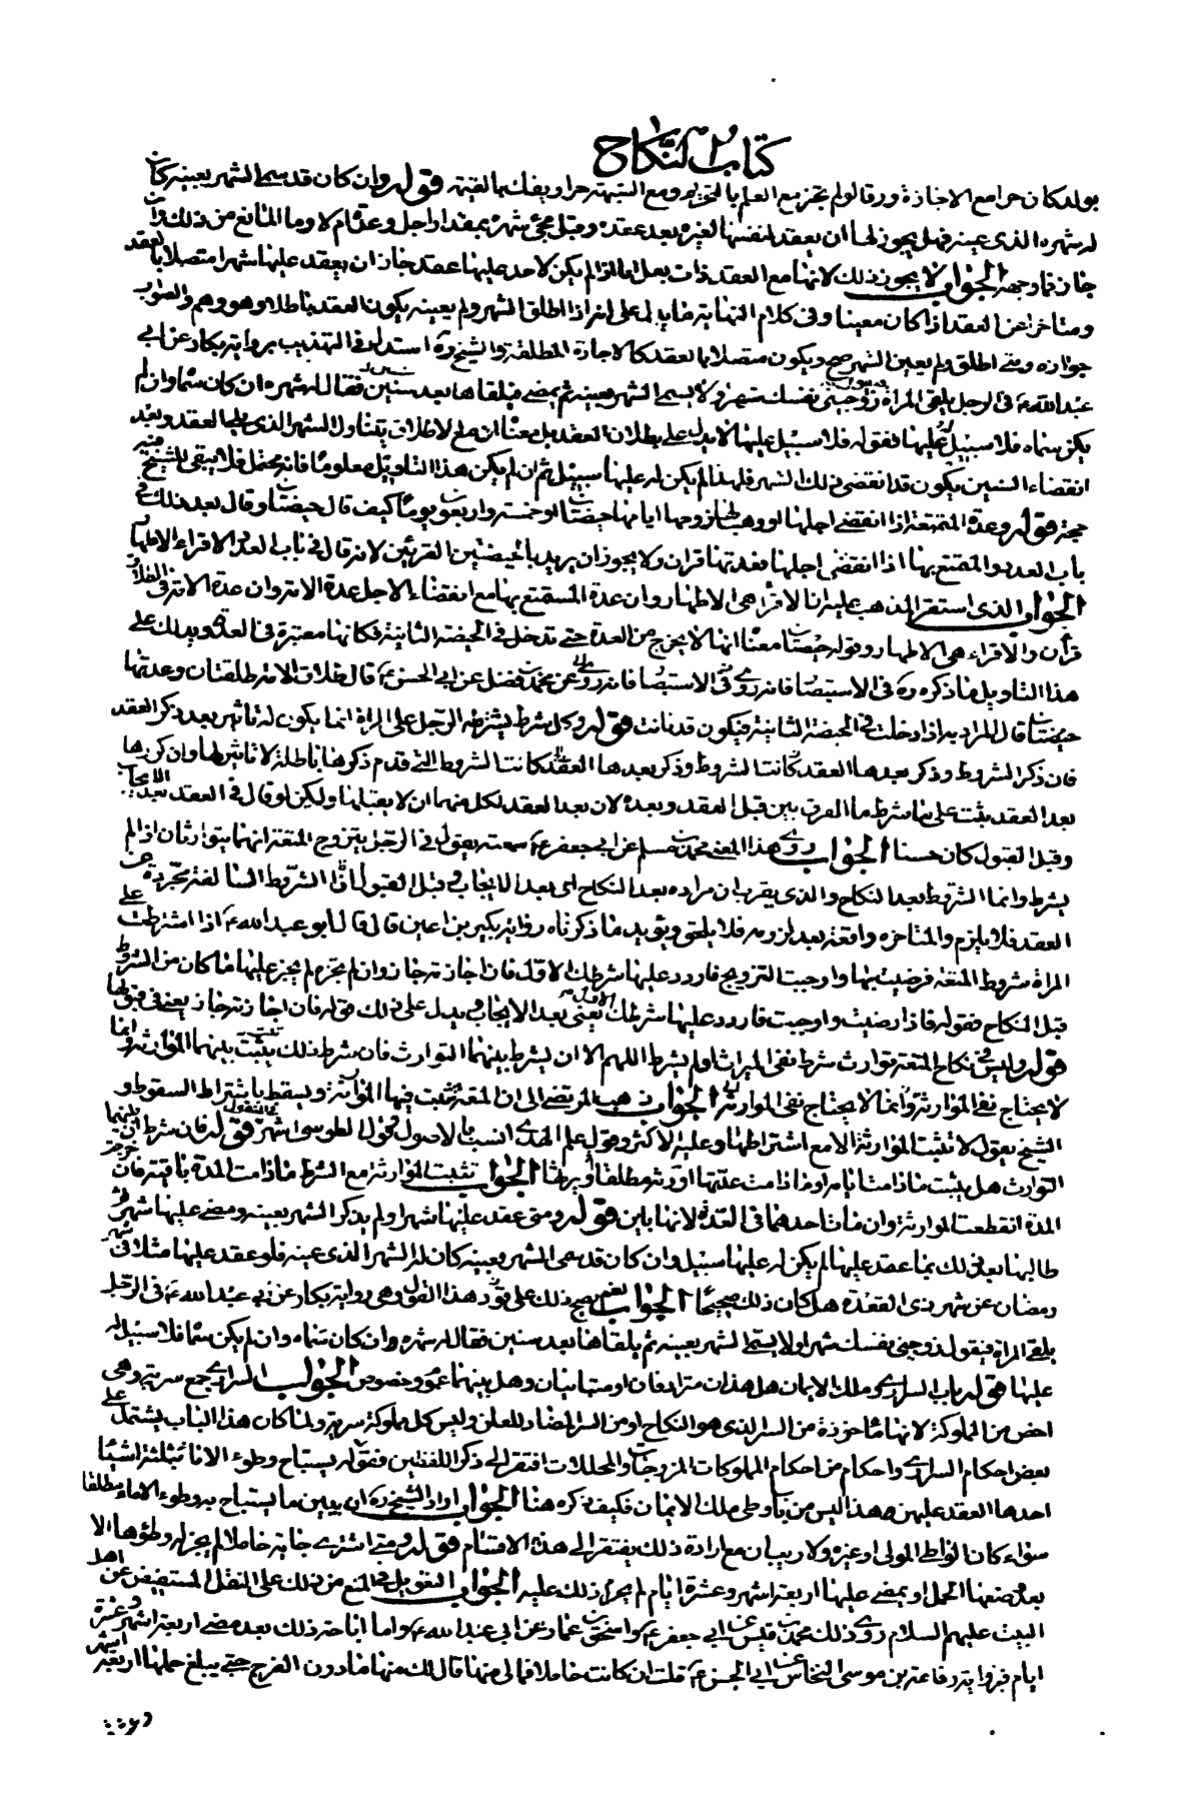 كتاب النكاح
بولد كان حرا مع الاجازة ورقا لو لم تجز مع العلم بالتحريم ومع الشبهة حرا ويفك بالقيمة قوله وان كان قد سمى الشهر بعينه كان
له شهره الذي عينه فهل يجوز لها ان يعقد لنفسها لغيره بعد عقده وقبل مجئ شهره بمقدار اجل وعدة ام لا وما المانع من ذلك وان
جاز فما وجهه الجواب لا يجوز ذلك لانها مع العقد ذات بعل اما لو لم يكن لاحد عليها عقد جاز ان يعقد عليها شهرا متصلا بالعقد
ومتاخرا عن العقد اذا كان معينا وفي كلام النهاية ما يدل على انه اذا اطلق الشهر ولم يعينه يكون العقد باطلا وهو وهم والصواب
جوازه ومتى اطلق ولم يعين الشهر صح ويكون متصلا بالعقد كالاجارة المطلقة والشيخ ره استدل في التهذيب برواية بكار عن ابي
عبد الله ع في الرجل يلقى المراة زوجيني نفسك شهرا ولا يسمى الشهر بعينه ثم يمضي فيلقاها بعد سنين فقال له شهره ان كان سماه وان لم
يكن سماه فلا سبيل عليها فقوله فلا سبيل عليها لا يدل على بطلان العقد بل معنا انه مع الاطلاق يتناول الشهر الذي يلي العقد وبعد
انقضاء السنين يكون قد انقضى ذلك الشهر فلهذا لم يكن له عليها سبيل ثم ان لم يكن هذا التاويل معلوما فانه محتمل فلا يبقى للشيخ فيه
حجة قوله وعدة المتمتعة اذا انقضى اجلها او وهب لها زوجها ايامها حيضتان او خمسة واربعون يوما كيف قال حيضتان وقال بعد ذلك في
باب العدد والمتمتع بها اذا انقضى اجلها فعدتها قرآن ولا يجوز ان يريد بالحيضتين القرئين لانه قال في باب العدد الاقراء الاطهار
الجواب الذي استقر المذهب عليه ان الاقراء هي الاطهار وان عدة المستمتع بها مع انقضاء الاجل عدة الامة وان عدة الامة في الطلاق
قرآن والاقراء هي الاطهار وقوله حيضتان معنا انها لا يخرج من العدة حتى تدخل في الحيضة الثانية فكانها معتبرة في العدة ويدلك على
هذا التاويل ما ذكره ره في الاستبصار فانه روى في الاستبصار عن محمد بن فضل عن ابي الحسن ع قال طلاق الامة طلقتان وعدتها
حيضتان قال المراد به اذا دخلت في الحيضة الثانية فيكون قد بانت قوله وكل شرط يشترطه الرجل على المراة انما يكون له تاثير بعد ذكر العقد
فان ذكر الشروط وذكر بعدها العقد كانت الشروط التي قدم ذكرها باطلة لا تاثير لها وان كررها
بعد العقد ثبت على ما شرط ما الفرق بين قبل العقد وبعده لان بعد العقد لكل منهما ان لا يقبلها ولكن لو قال في العقد بعد الايجاب
وقبل القبول كان حسنا الجواب روى هذا المعنى محمد بن مسلم عن ابي جعفر ع سمعته يقول في الرجل يتزوج المتعة انهما يتوارثان اذا لم
يشرط وانما الشرط بعد النكاح والذي يقرب ان مراده بعد النكاح اى بعد الايجاب وقبل القبول اذا الشروط السالفة مجردة عن
العقد فلا يلزم والمتاخرة واقعة بعد لزومه فلا يلحق ويؤيد ما ذكرناه رواية بكير بن اعين قال قال ابو عبد الله ع اذا اشترطت على
المراة شروط المتعة فرضيت بها واوجبت التزويج فاردد عليها شرطك الاول فان اجازته جاز وان لم يجزه لم يجز عليها ما كان من الشرط
قبل النكاح فقوله فاذا رضيت واوجبت فاردد عليها شرطك الاول يعني بعد الايجاب ويدل على ذلك قوله فان اجازته جاز يعني في قبولها
قوله وليس في نكاح المتعة توارث شرط نفي الميراث او لم يشرط اللهم الا ان يشرط بينهما التوارث فان شرط ذلك يثبت بينهما الموارثة وانما
لا يحتاج نفي الموارثة وانما لا يحتاج نفي الموارثة الجواب ذهب المرتضى الى ان المتعة يثبت فيها الموارثة ويسقط باشتراط السقوط و
الشيخ يقول لا تثبت الموارثة الا مع اشتراطها وعليه الاكثر وقول علم الهدى انسب بالاصول وقول الطوسي اشهر في النقول قوله فان شرط ان بينهما
التوارث هل يثبت ما دامت المدة باقية فان
المدة انقطعت الموارثة وان مات احدهما في العدة لانها باين قوله ومتى عقد عليها شهرا ولم يذكر الشهر بعينه ومضى عليها شهر ثم
طالبها بعد ذلك بما عقد عليها لم يكن له عليها سبيل وان كان قد سمى الشهر بعينه كان له الشهر الذي عينه فلو عقد عليها مثلا في شهر
رمضان عن شهر ذي القعدة هل كان ذلك صحيحا الجواب نعم يصح ذلك على هذا القول وهي رواية بكار عن ابي عبد الله ع في الرجل
يلقى المراة فيقول زوجيني نفسك شهرا ولا يسمى الشهر بعينه ثم يلقاها بعد سنين فقال له شهره ان كان سماه وان لم يكن سماه فلا سبيل له
عليها قوله باب السراري وملك الايمان هل هذان مترادفان او متباينان وهل بينهما عموم وخصوص الجواب السراري جمع سرية وهى
اخص من المملوكة لانها ماخوذة من السر الذي هو النكاح او من السر المضاد للعلن وليس كل مملوكة سرية ولما كان هذا الباب يشتمل على
بعض احكام السراري واحكام من احكام المملوكات المزوجات والمحللات افتقر الى ذكر اللفظين فقوله يستباح وطوء الاماء بثلثة اشياء
احدها العقد عليهن وهذا ليس من باب وطى ملك الايمان فكيف ذكره هنا الجواب اراد الشيخ ره ان يعين ما يستباح به وطوء الاماء مطلقا
سواء كان الواطى المولى او غيره ولا ريب ان مع ارادة ذلك يفتقر الى هذه الاقسام قوله ومتى اشترى جارية حاملا لم يجز له وطؤها الا
بعد وضعها الحمل او يمضى عليها اربعة اشهر وعشرة ايام لم يجز ذلك عليه الجواب التعويل في المنع من ذلك على النقل المستفيض عن اهل
البيت عليهم السلام روى ذلك محمد بن قيس عن ابي جعفر ع واسحق بن عمار عن ابي عبد الله ع واما اباحته ذلك بعد مضى اربعة اشهر وعشرة
ايام فبرواية رفاعة بن موسى النخاس عن ابي الحسن ع قلت ان كانت حاملا فمالي منها قال لك منها ما دون الفرج حتى يبلغ حملها اربعة اشهر